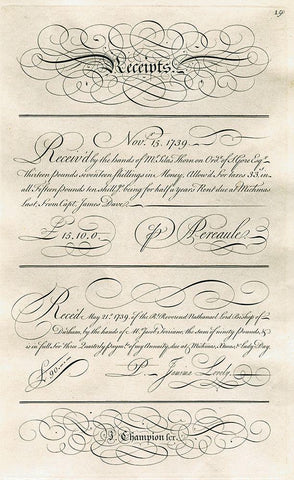 19
Receipts.
Nov.r 15. 1739.
Receiv'd by the hands of Mr. John Thorn on Ord.r of J. Gore Esq.r
Thirteen Pounds seventeen Shillings in Money, Allow'd for taxes 33. in
all Fifteen Pounds ten Shill.gs being for half a Years Rent due at Mich'mas
Last From Capt. James Dave
£ 15.10.0. p Percaule
Receiv'd May 21.st 1739, of the R.t Reverend Nathanael Lord Bishop of
Durham, by the hands of Mr. Jacob Serriane, the sum of ninety Pounds, &
is in full for Three Quarterly Paym.ts of my Annuity, due at Mich'mas, Xmas, & Lady Day.
£ 90..0..0 P. Jemima Lovely
J. Champion scr.